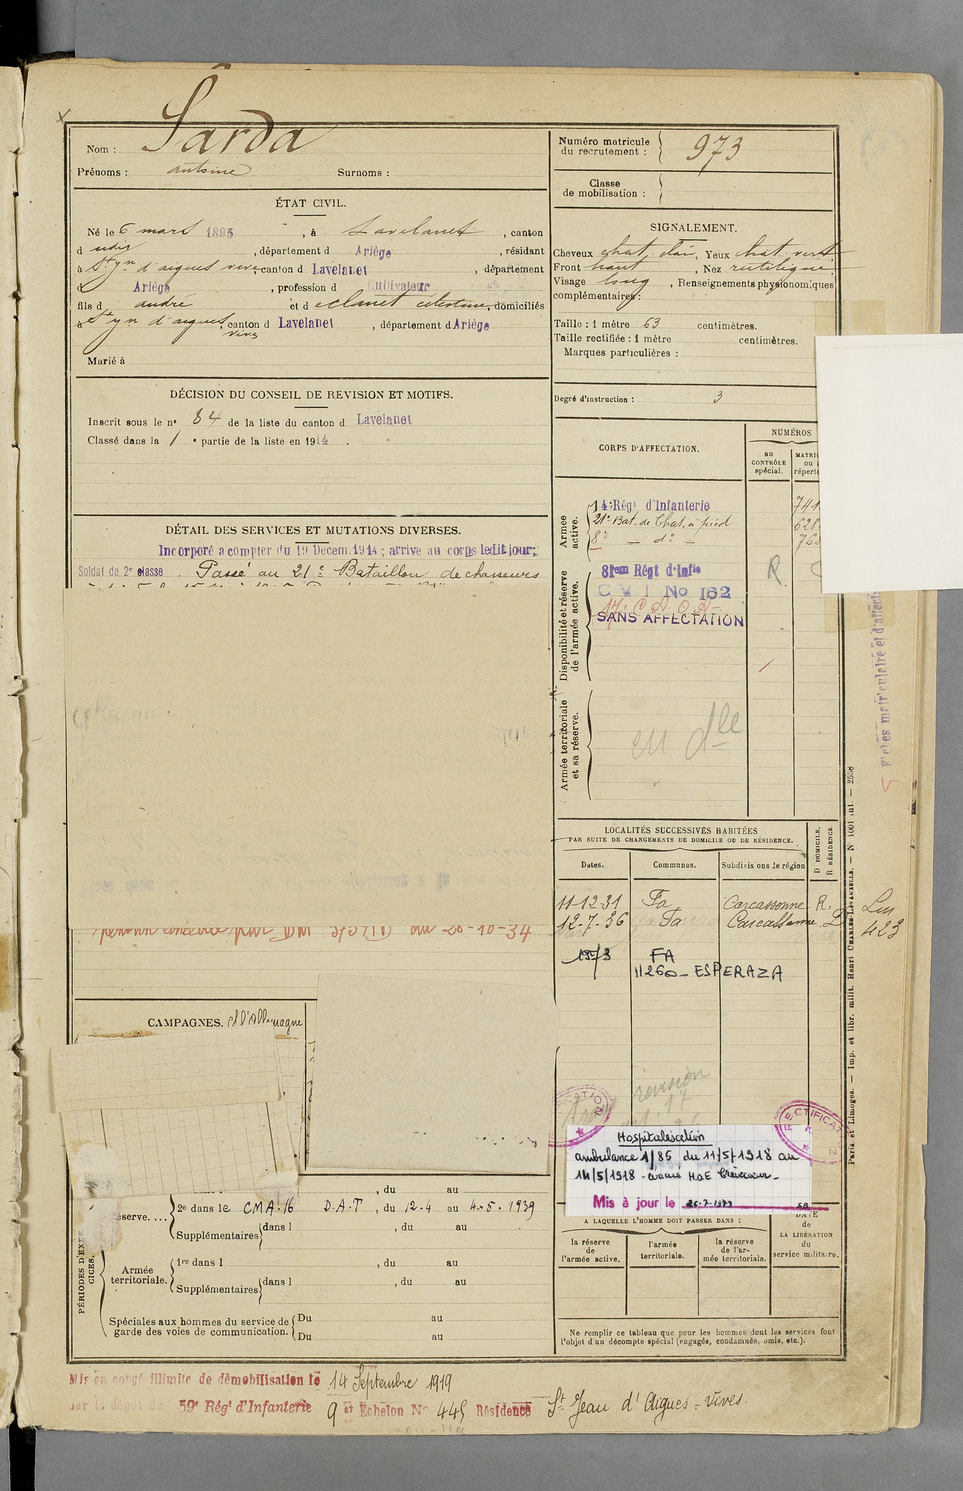 Nom : Sarda
Prénoms : antoine Surnoms :
Numéro matricule du recrutement : 973
Classe de mobilisation :
ÉTAT CIVIL.
Né le 6 mars 1895, à Lavelanet, canton
d udis, département d Ariège, résidant
à St Jn d'aigues vives canton d Lavelanet, département
d Ariège, profession d Cultivateur
fils d andre et d eclanet celestine, domiciliés
à St Jn d'aigues vives, canton d Lavelanet, département d Ariège
Marié à
SIGNALEMENT.
Cheveux chat. clair, Yeux chat. vert
Front haut, Nez rectiligne
Visage long, Renseignements physionomiques
complémentaires :
Taille : 1 mètre 63 centimètres.
Taille rectifiée : 1 mètre centimètres.
Marques particulières :
Degré d'instruction : 3
DÉCISION DU CONSEIL DE REVISION ET MOTIFS.
Inscrit sous le n° 84 de la liste du canton d Lavelanet
Classé dans la 1 e partie de la liste en 1914.
DÉTAIL DES SERVICES ET MUTATIONS DIVERSES.
Incorporé a compter du 19 Décem. 1914 ; arrivé au corps ledit jour ;
Soldat de 2e classe. Passé au 21e Bataillon de chasseurs
au 20-10-34
CORPS D'AFFECTATION.
NUMÉROS
au CONTRÔLE spécial.
Armée active.
14e Régt d'Infanterie
21e Bat. de Chas. à pied
8e — do —
Disponibilité et réserve de l'armée active.
81em Régt d'Infie
C M I No 162
17e C.A.O.A-
SANS AFFECTATION
R.
Armée territoriale et sa réserve.
en dle
Fiches matriculaire et d'affect
LOCALITÉS SUCCESSIVES HABITÉES
PAR SUITE DE CHANGEMENTS DE DOMICILE OU DE RÉSIDENCE.
Dates. Communes. Subdivisions de région
D DOMICILE. R RÉSIDENCE.
11-12-31 Fa Carcassonne R.
12-7-36 Fa Carcassonne D
423
1973 FA
11260 - ESPERAZA
CAMPAGNES. Ct l'Allemagne
revision
RECTIFICATION
Hospitalisation
ambulance 1/85 du 11/5/1918 au
14/5/1918 -
Mis à jour le 26-7-1973
PÉRIODES D'EXERCICES.
, du au
2e dans le CMA. 16 D.A.T, du 12-4 au 4-5-1939
Supplémentaires dans l , du au
Armée territoriale.
1re dans l , du au
Supplémentaires dans l , du au
Spéciales aux hommes du service de garde des voies de communication. Du au
Du au
A LAQUELLE L'HOMME DOIT PASSER DANS :
la réserve de l'armée active.
l'armée territoriale.
la réserve de l'armée territoriale.
DATE de LA LIBÉRATION du service militaire.
Ne remplir ce tableau que pour les hommes dont les services font
l'objet d'un décompte spécial (engagés, condamnés, omis, etc.).
Paris et Limoges. — Imp. et libr. milit. Henri CHARLES-LAVAUZELLE. — N° 1001 int. — 2558
Mis en congé illimité de démobilisation le 14 Septembre 1919
par le dépôt du 59e Régt d'Infanterie 9 e Echelon No 445 Résidence St Jean d'Aigues-Vives.